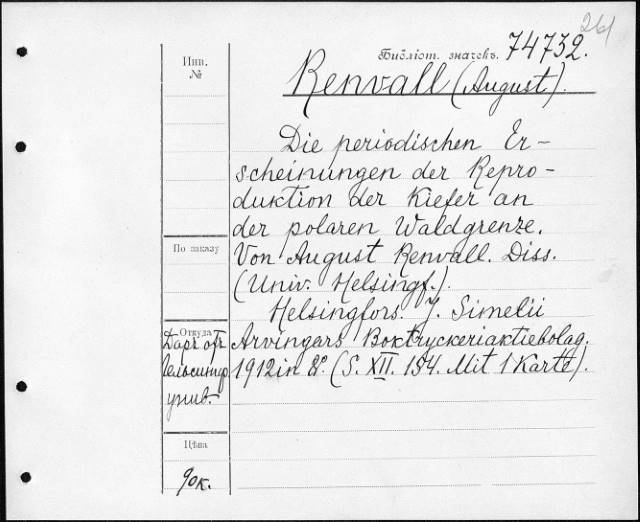 261
Инв.
№
Библіот. значекъ. 74732.
Renvall (August).
Die periodischen Er-
scheinungen der Repro-
duktion der Kiefer an
der polaren Waldgrenze.
По заказу
Von August Renvall. Diss.
(Univ. Helsingf.).
Helsingfors. J. Simelii
Откуда
Даръ отъ
Arvingars Boktryckeriaktiebolag.
Гельсингф.
1912 in 8°. (S. XII. 154. Mit 1 Karte).
унив.
Цѣна
90к.